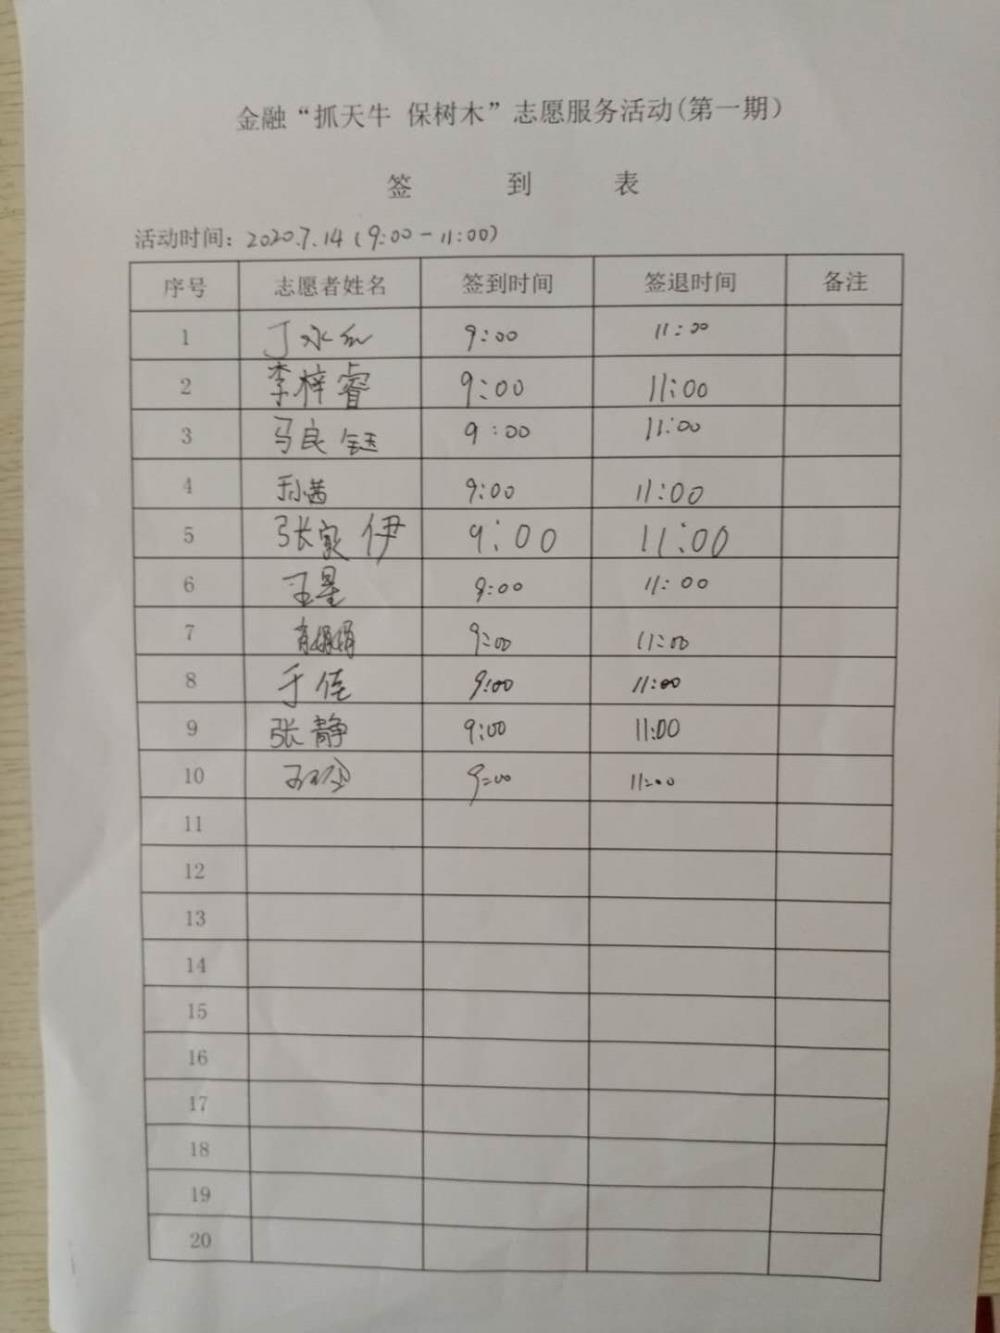 金融“抓天牛 保树木”志愿服务活动(第一期)
签 到 表
活动时间: 2020.7.14 (9:00-11:00)
序号 志愿者姓名 签到时间 签退时间 备注
1 丁永红 9:00 11:00
2 李梓睿 9:00 11:00
3 马良钰 9:00 11:00
4 孙茜 9:00 11:00
5 张家伊 9:00 11:00
6 王星 9:00 11:00
7 肖娟娟 9:00 11:00
8 于佳 9:00 11:00
9 张静 9:00 11:00
10 9:00 11:00
11
12
13
14
15
16
17
18
19
20